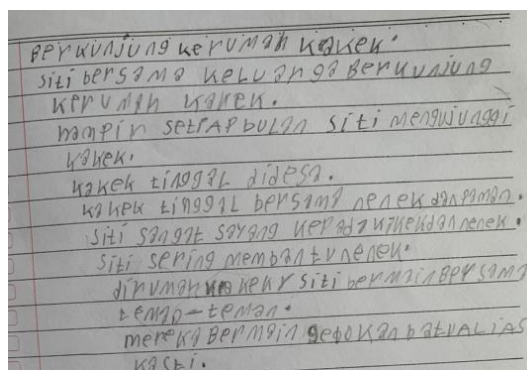 Berkunjung kerumah kakek.
Siti bersama keluanga Berkunjung
kerumah kakek.
hampir setiap bulan siti mengunjungi
kakek.
kakek tinggal didesa.
kakek tinggal bersama nenek dan paman.
Siti sangat sayang kepada kakek dan nenek.
Siti sering membantu nenek.
dirumah kakek siti bermain bersama
teman-teman.
mereka Bermain gebokan batu ALIAS
kasti.